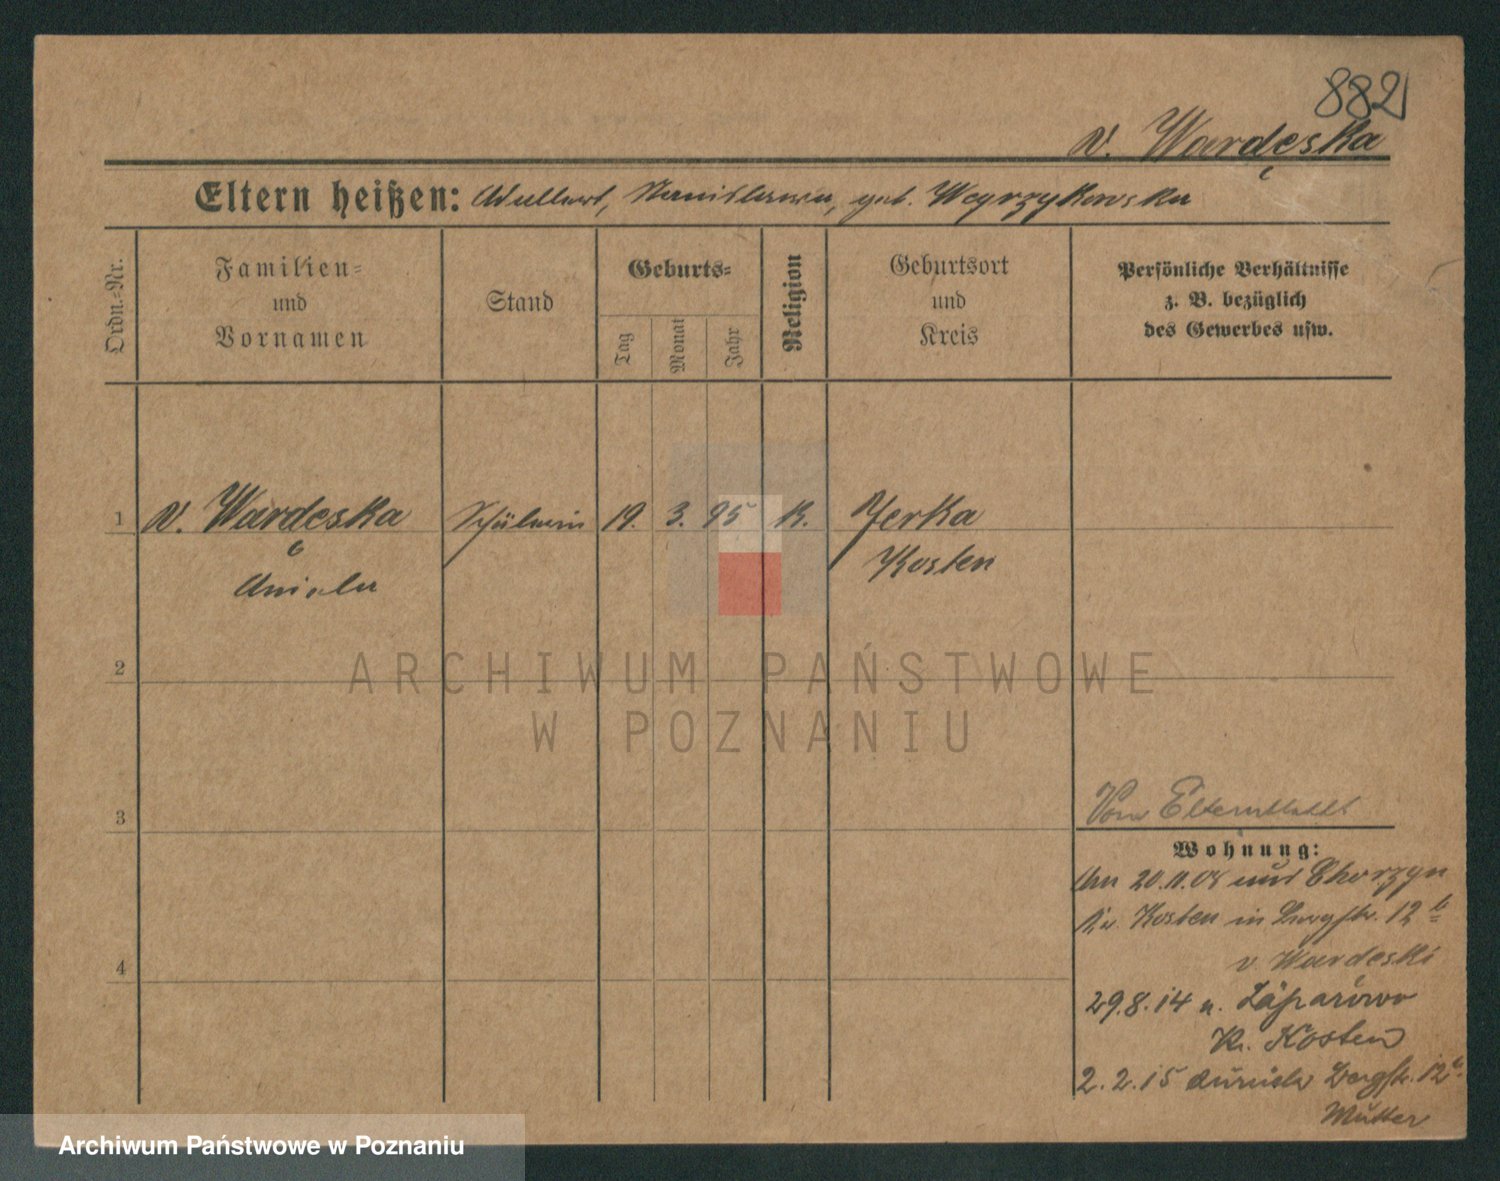 882
v. Wardęska
Eltern heißen: Adalbert, Stanislawa, geb. Węgrzykowska
Ordn.-Nr.
Familien-
und
Vornamen
Stand
Geburts-
Tag
Monat
Jahr
Religion
Geburtsort
und
Kreis
Persönliche Verhältnisse
z. B. bezüglich
des Gewerbes usw.
1 v. Wardęska Schülerin 19. 3. 95 K. Jerka
Aniela Kosten
2
ARCHIWUM PAŃSTWOWE
W POZNANIU
3
Vom Elternblatt
Wohnung:
Am 20.11.08 aus Choryn
Kr. Kosten in Bergstr. 12 b
v Wardeski
29.8.14 n.
4
Kr. Kosten
2.2.15 zurück Bergstr. 12
Mutter
Archiwum Państwowe w Poznaniu